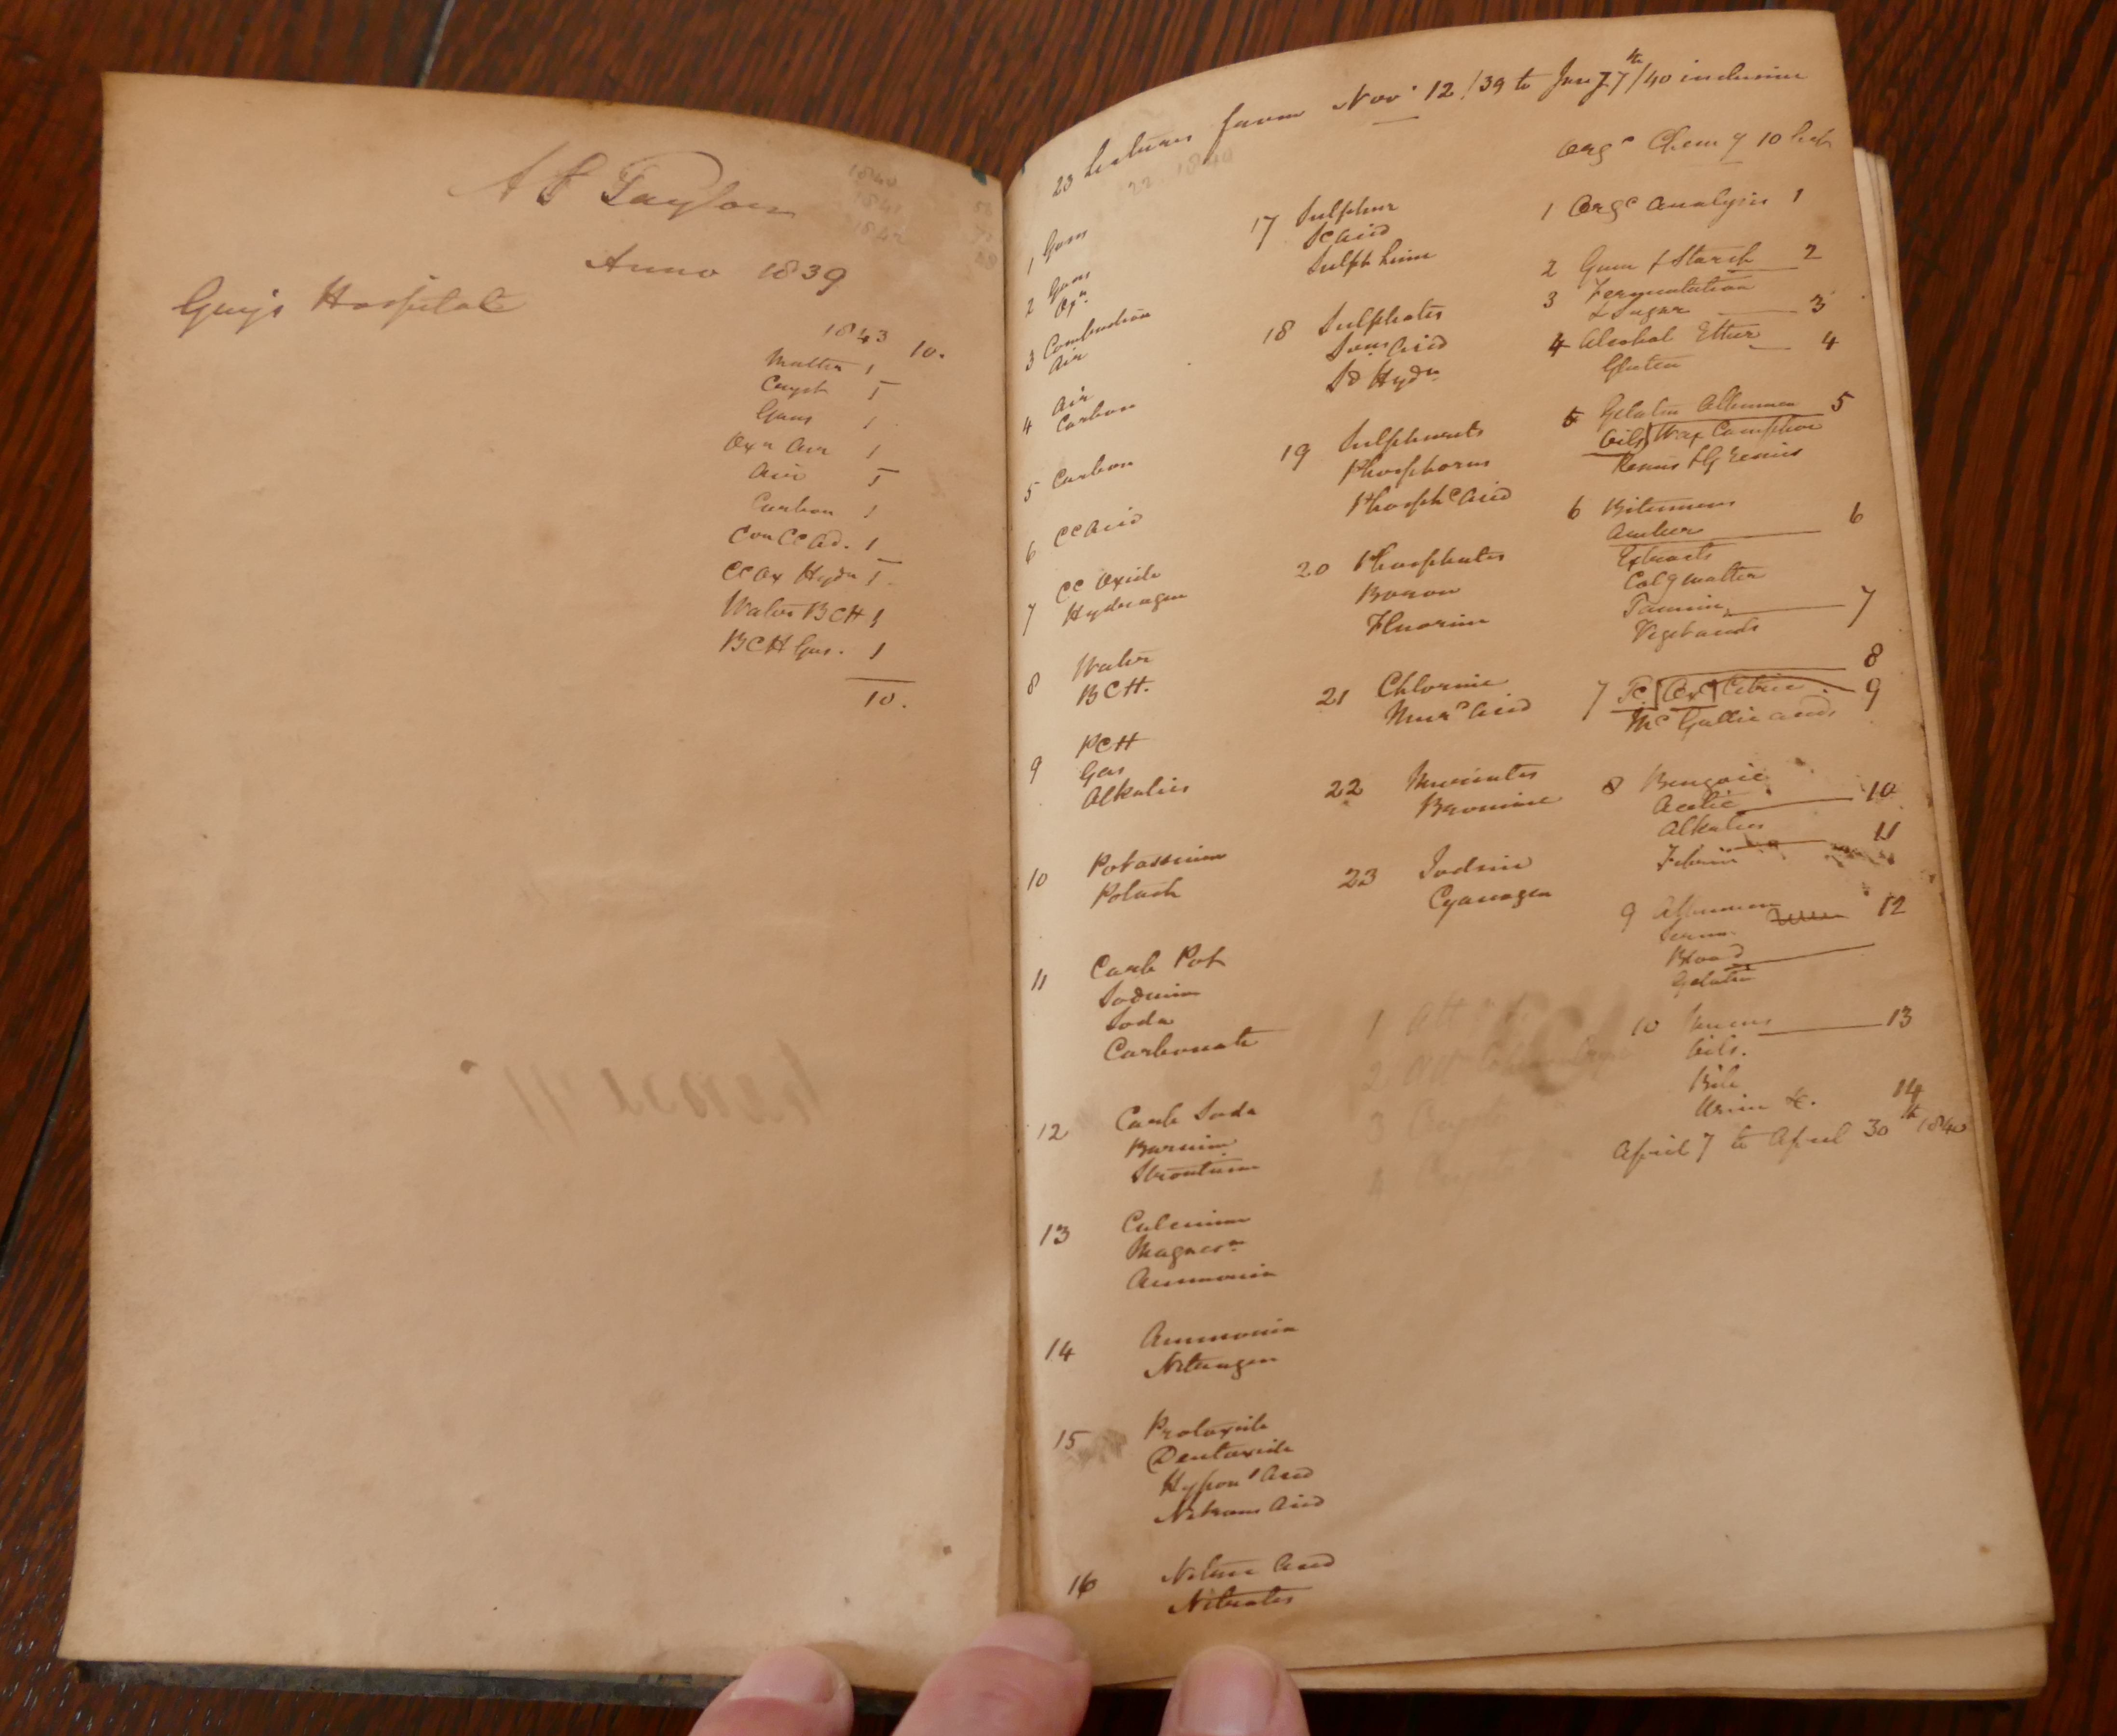 A S Taylor
Anno 1839
Guy's Hospital
1840
1841
1842
1843 10.
Matter 1
Cryst 1
Gases 1
Oxn Air 1
Air 1
Carbon 1
Con Cc Ad. 1
Cc Ox Hydn 1
Water BCH 1
BCH Gas. 1
10.
23 Lectures from Novr 12/39 to Jany 7th/40 inclusive
22 1840
1 Gases
2 Gases
Oxn
3 Combustion
Air
4 Air
Carbon
5 Carbon
6 Cc Acid
7 Cc Oxide
Hydrogen
8 Water
BCH.
9 PCH
Gas
Alkalies
10 Potassium
Potash
11 Carb Pot
Sodium
Soda
Carbonate
12 Carb Soda
Barium
Strontium
13 Calcium
Magnesm
Ammonia
14 Ammonia
Nitrogen
15 Protoxide
Deutoxide
Hypons Acid
Nitrous Acid
16 Nitric Acid
Nitrates
17 Sulphur
Sc Acid
Sulph Lime
18 Sulphates
Sous Acid
Sd Hydn
19 Sulphurets
Phosphorus
Phosphc Acid
20 Phosphates
Boron
Fluorine
21 Chlorine
Murc Acid
22 Muriates
Bromine
23 Iodine
Cyanogen
1 Att
2 Att
3 Cryst
4 Cryst
Orgc Chemy 10 Lect
1 Orgc Analysis 1
2 Gum & Starch 2
3 Fermentation
& Sugar 3
4 Alcohol Ether 4
Gluten
5 Gelatin Albumen 5
Oils Wax Camphor
Resins & G Resins
6 Bitumens
Amber 6
Extracts
Colg matter
Tannin 7
Veget acids
8
7 Tc Oxc Citric 9
Mc Gallic acids
8 Benzoic
Acetic 10
Alkalies
Fibrin 11
9 Albumen
Serum 12
Blood
Gelatin
10 Mucus 13
Oils.
Bile
Urine &c. 14
April 7 to April 30th 1840